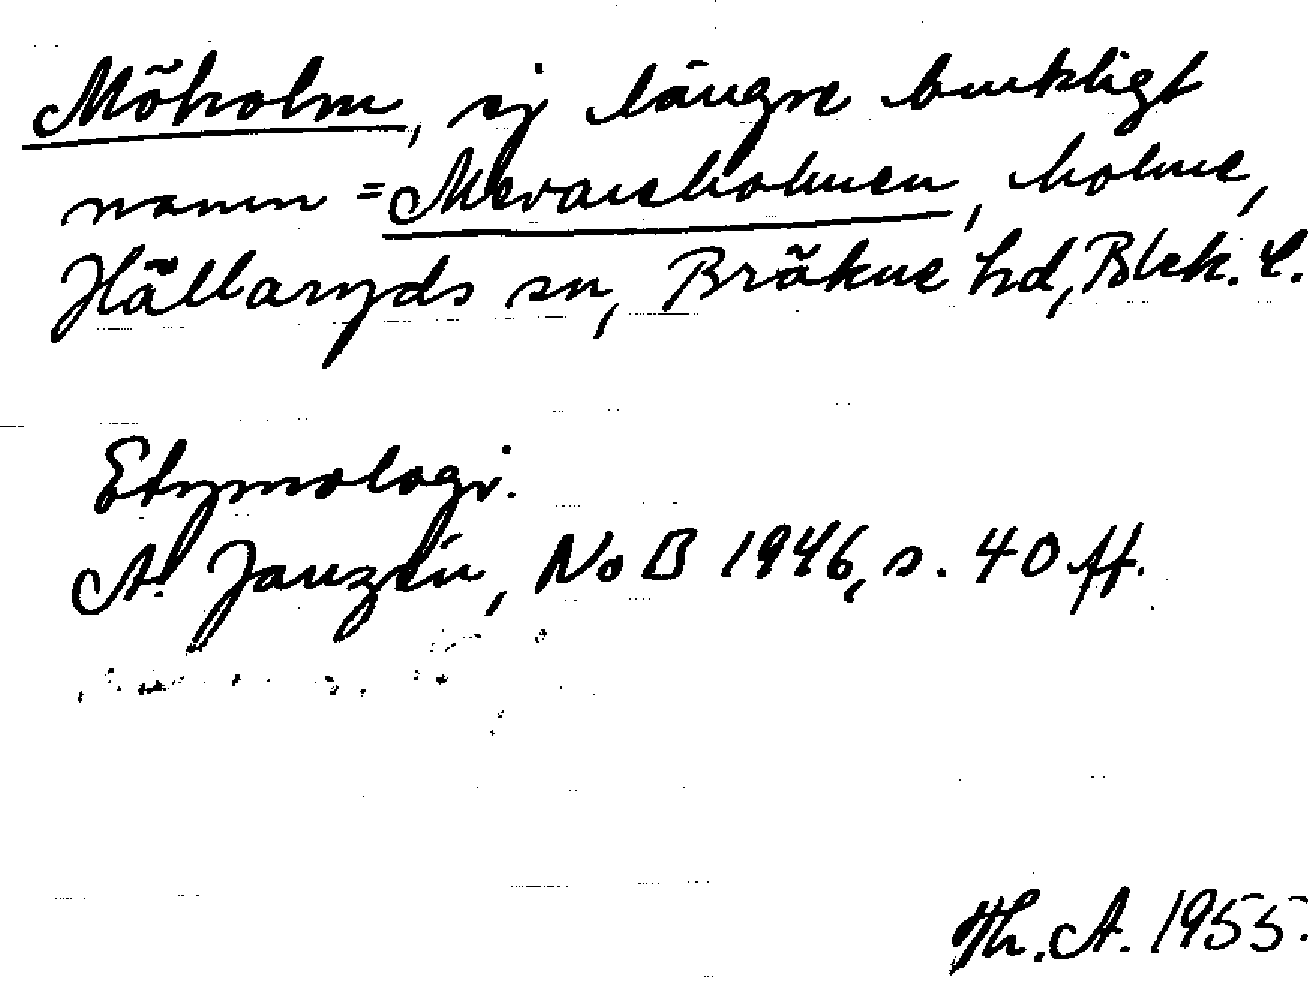 Möholm, ej längre brukligt
namn = Mevaieholmen, holme,
Hällaryds sn, Bräkne hd, Blek. l.
Etymologi.
A. Janzén, NoB 1946, s. 40 ff.
Th. A. 1955.